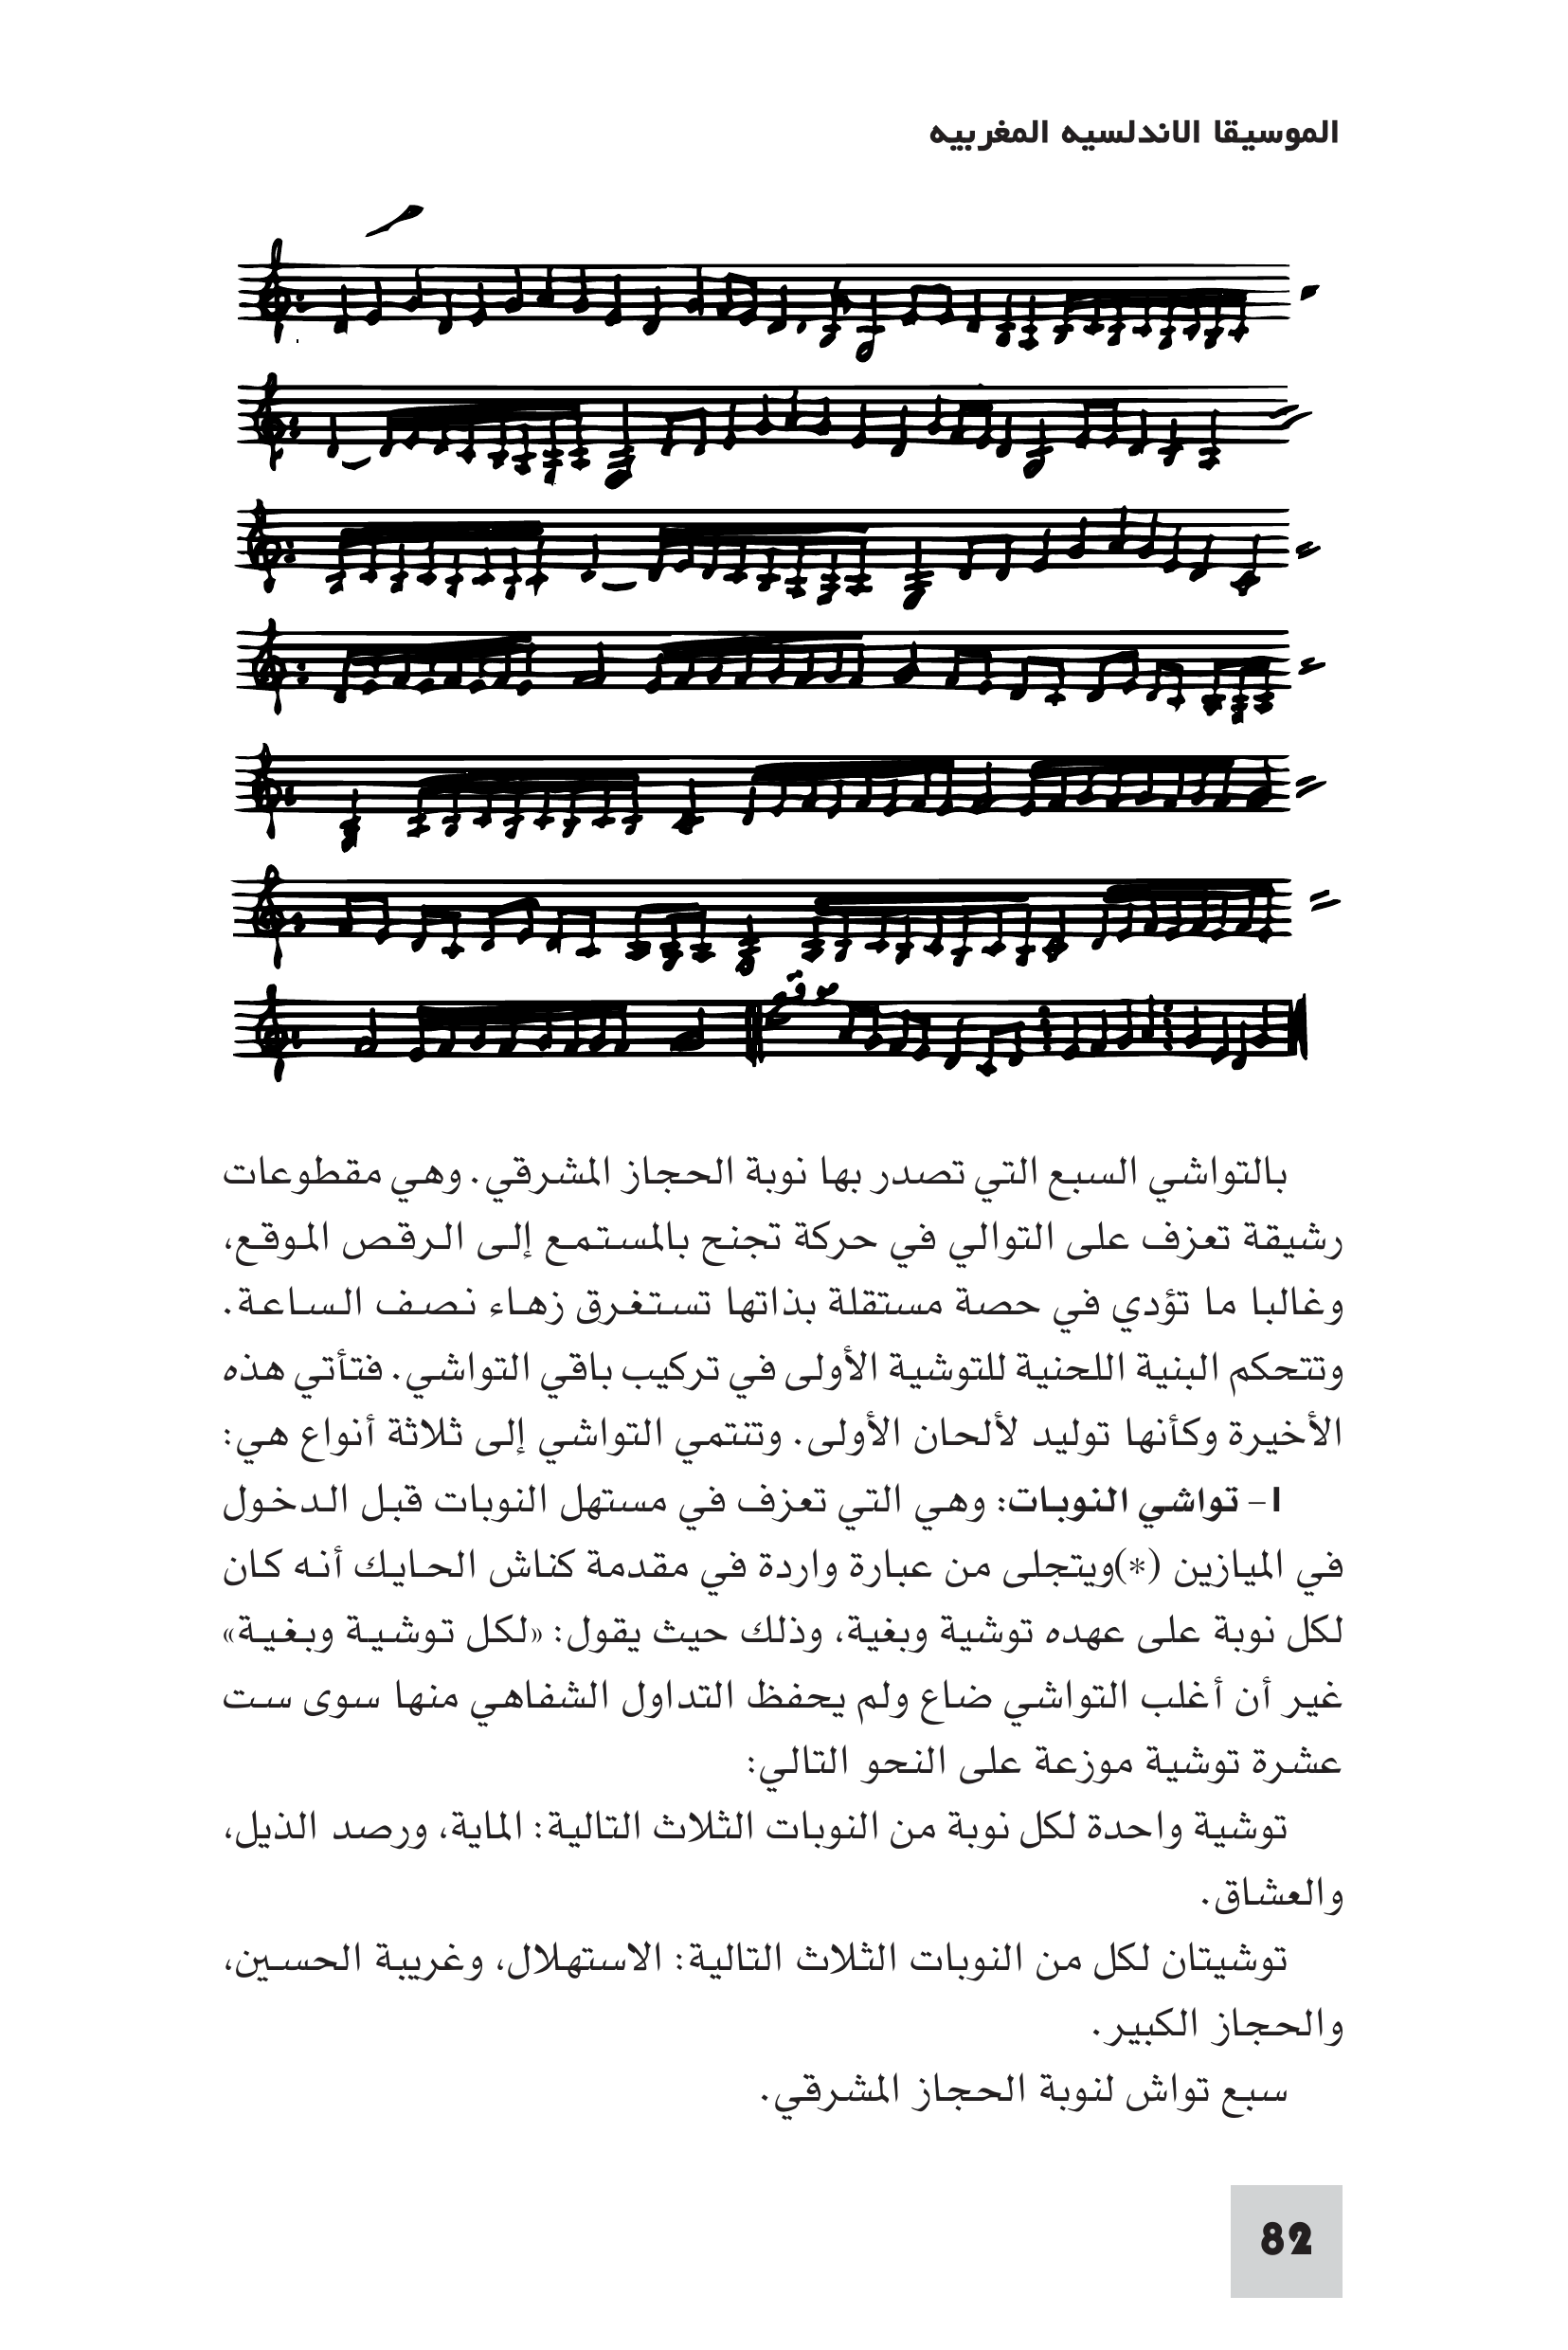 الموسيقا الاندلسيه المغربيه
بالتواشي السبع التي تصدر بها نوبة الحجاز المشرقي. وهي مقطوعات
رشيقة تعزف على التوالي في حركة تجنح بالمستمع إلى الرقص الموقع،
وغالبا ما تؤدي في حصة مستقلة بذاتها تستغرق زهاء نصف الساعة.
وتتحكم البنية اللحنية للتوشية الأولى في تركيب باقي التواشي. فتأتي هذه
الأخيرة وكأنها توليد لألحان الأولى. وتنتمي التواشي إلى ثلاثة أنواع هي:
ا- تواشي النوبات: وهي التي تعزف في مستهل النوبات قبل الدخول
في الميازين (*)ويتجلى من عبارة واردة في مقدمة كناش الحايك أنه كان
لكل نوبة على عهده توشية وبغية، وذلك حيث يقول: «لكل توشية وبغية»
غير أن أغلب التواشي ضاع ولم يحفظ التداول الشفاهي منها سوى ست
عشرة توشية موزعة على النحو التالي:
توشية واحدة لكل نوبة من النوبات الثلاث التالية: الماية، ورصد الذيل،
والعشاق.
توشيتان لكل من النوبات الثلاث التالية: الاستهلال، وغريبة الحسين،
والحجاز الكبير.
سبع تواش لنوبة الحجاز المشرقي.
82